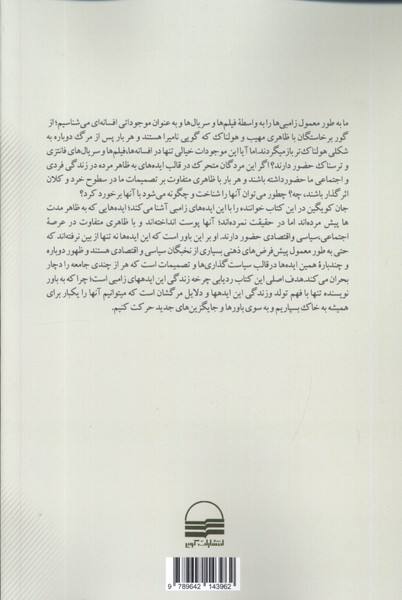 ما به طور معمول زامبی‌ها را به واسطهٔ فیلم‌ها و سریال‌ها و به عنوان موجوداتی افسانه‌ای می‌شناسیم؛ از
گور برخاستگان با ظاهری مهیب و هولناک که گویی نامیرا هستند و هر بار پس از مرگ دوباره به
شکلی هولناک‌تر بازمیگردند.اما آیا این موجودات خیالی تنها در افسانه‌ها،فیلم‌ها و سریال‌های فانتزی
و ترسناک حضور دارند؟ اگر این مردگان متحرک در قالب ایده‌های به ظاهر مرده در زندگی فردی
و اجتماعی ما حضورداشته باشند و هر بار با ظاهری متفاوت بر تصمیمات ما در سطوح خرد و کلان
اثرگذار باشند، چه؟ چطور می‌توان آنها را شناخت و چگونه می‌شود با آنها برخورد کرد؟
جان کویگین در این کتاب خواننده را با این ایده‌های زامبی آشنا می‌کند؛ ایده‌هایی که به ظاهر مدت
ها پیش مرده‌اند اما در حقیقت نمرده‌اند؛ آنها پوست انداخته‌اند و با ظاهری متفاوت در عرصهٔ
اجتماعی،سیاسی و اقتصادی حضور دارند. او بر این باور است که این ایده‌ها نه تنها از بین نرفته‌اند که
حتی به طور معمول پیش‌فرض‌های ذهنی بسیاری از نخبگان سیاسی و اقتصادی هستند و ظهور دوباره
و چندبارهٔ همین ایده‌ها درقالب سیاست‌گذاری‌ها و تصمیمات است که هر از چندی جامعه را دچار
بحران می‌کند.هدف اصلی این کتاب ردیابی چرخه زندگی این ایدههای زامبی است؛ چرا که به باور
نویسنده تنها با فهم تولد وزندگی این ایدهها و دلایل مرگشان است که میتوانیم آنها را یکبار برای
همیشه به خاک بسپاریم و به سوی باورها و جایگزین‌های جدید حرکت کنیم.
انتشارات کویر
9 789642 143962